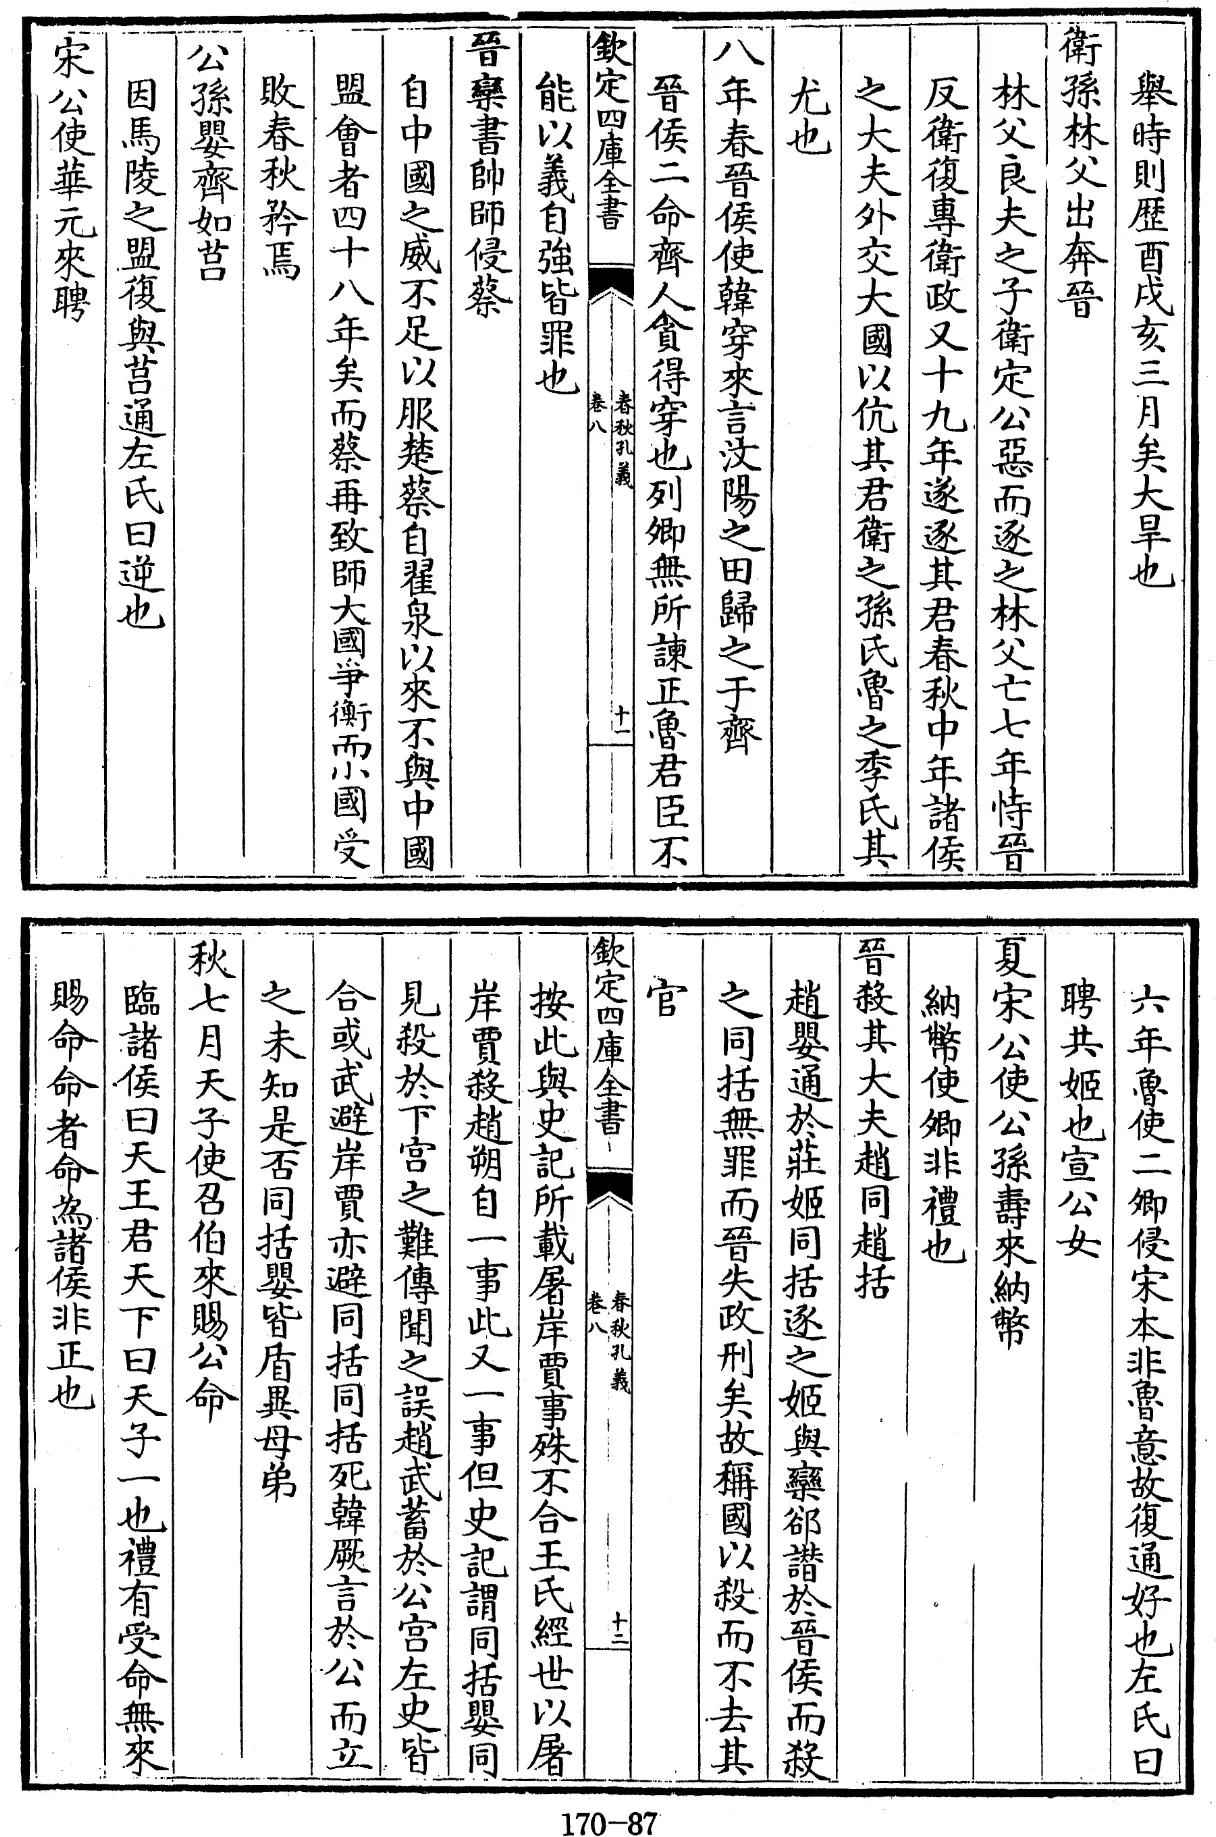 舉時則歴酉戌亥三月矣大旱也
衛孫林父出奔晉
林父良夫之子衛定公惡而逐之林父亡七年恃晉
反衛復專衛政又十九年遂逐其君春秋中年諸侯
之大夫外交大國以伉其君衛之孫氏魯之季氏其
尤也
八年春晉侯使韓穿來言汶陽之田歸之于齊
晉侯二命齊人貪得穿也列卿無所諫正魯君臣不
欽定四庫全書
春秋孔義
卷八
十一
能以義自強皆罪也
晉欒書帥師侵蔡
自中國之威不足以服楚蔡自翟泉以來不與中國
盟會者四十八年矣而蔡再致師大國爭衡而小國受
敗春秋矜焉
公孫嬰齊如莒
因馬陵之盟復與莒通左氏曰逆也
宋公使華元來聘
六年魯使二卿侵宋本非魯意故復通好也左氏曰
聘共姬也宣公女
夏宋公使公孫壽來納幣
納幣使卿非禮也
晉殺其大夫趙同趙括
趙嬰通於莊姬同括逐之姬與欒郤譖於晉侯而殺
之同括無罪而晉失政刑矣故稱國以殺而不去其
官
欽定四庫全書
春秋孔義
卷八
十二
按此與史記所載屠岸賈事殊不合王氏經世以屠
岸賈殺趙朔自一事此又一事但史記謂同括嬰同
見殺於下宮之難傳聞之誤趙武蓄於公宮左史皆
合或武避岸賈亦避同括同括死韓厥言於公而立
之未知是否同括嬰皆盾異母弟
秋七月天子使召伯來賜公命
臨諸侯曰天王君天下曰天子一也禮有受命無來
賜命命者命為諸侯非正也
170-87